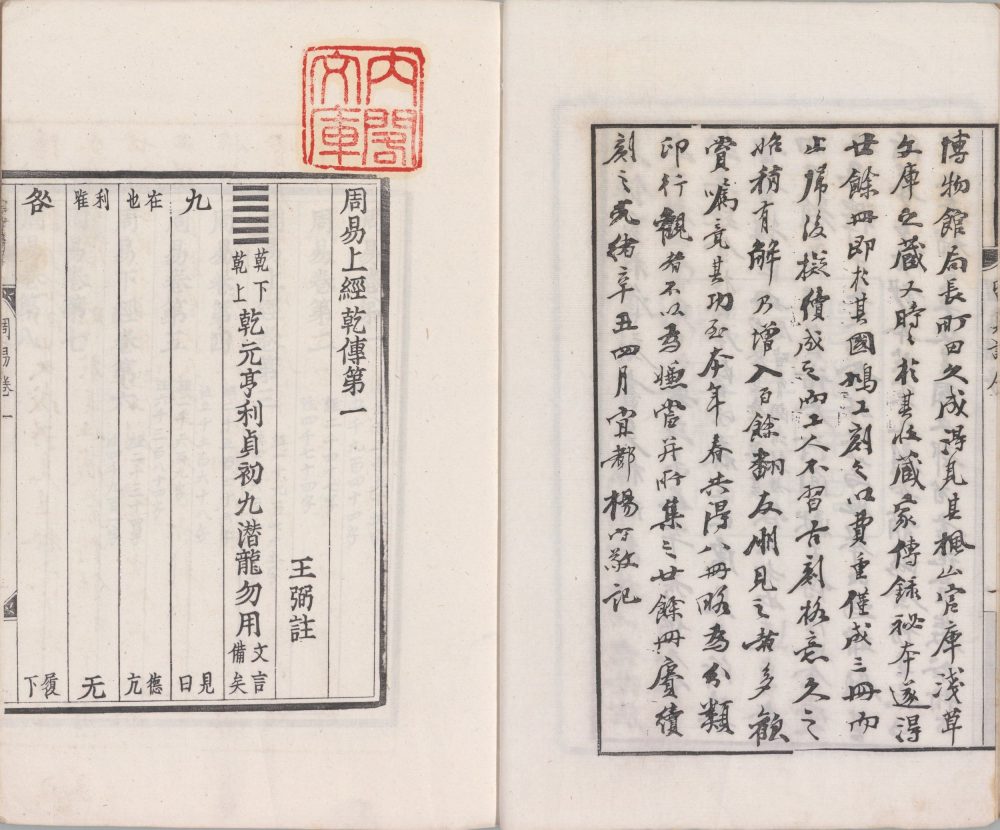 博物館局長町田久成得見其楓山官庫淺草
文庫之藏又時々於其收藏家傳錄祕本遂得
廿餘冊即於其國鳩工刻之以費重僅成三冊而
止歸後擬續成之而工人不習古刻格意久之
始稍有解乃增入百餘翻友朋見之者多歡
賞囑竟其功至本年春共得八冊略為分類
印行觀者不以為嫌當并所集之廿餘冊賡續
刻之光緒辛丑四月宜都楊守敬記
內閣
文庫
周易上經乾傳第一
王弼註
乾下
乾上
乾元亨利貞初九潛龍勿用
文言
備矣
九
見
曰
在
也
德
亢
利
雖
无
咎
履
下
周易卷一